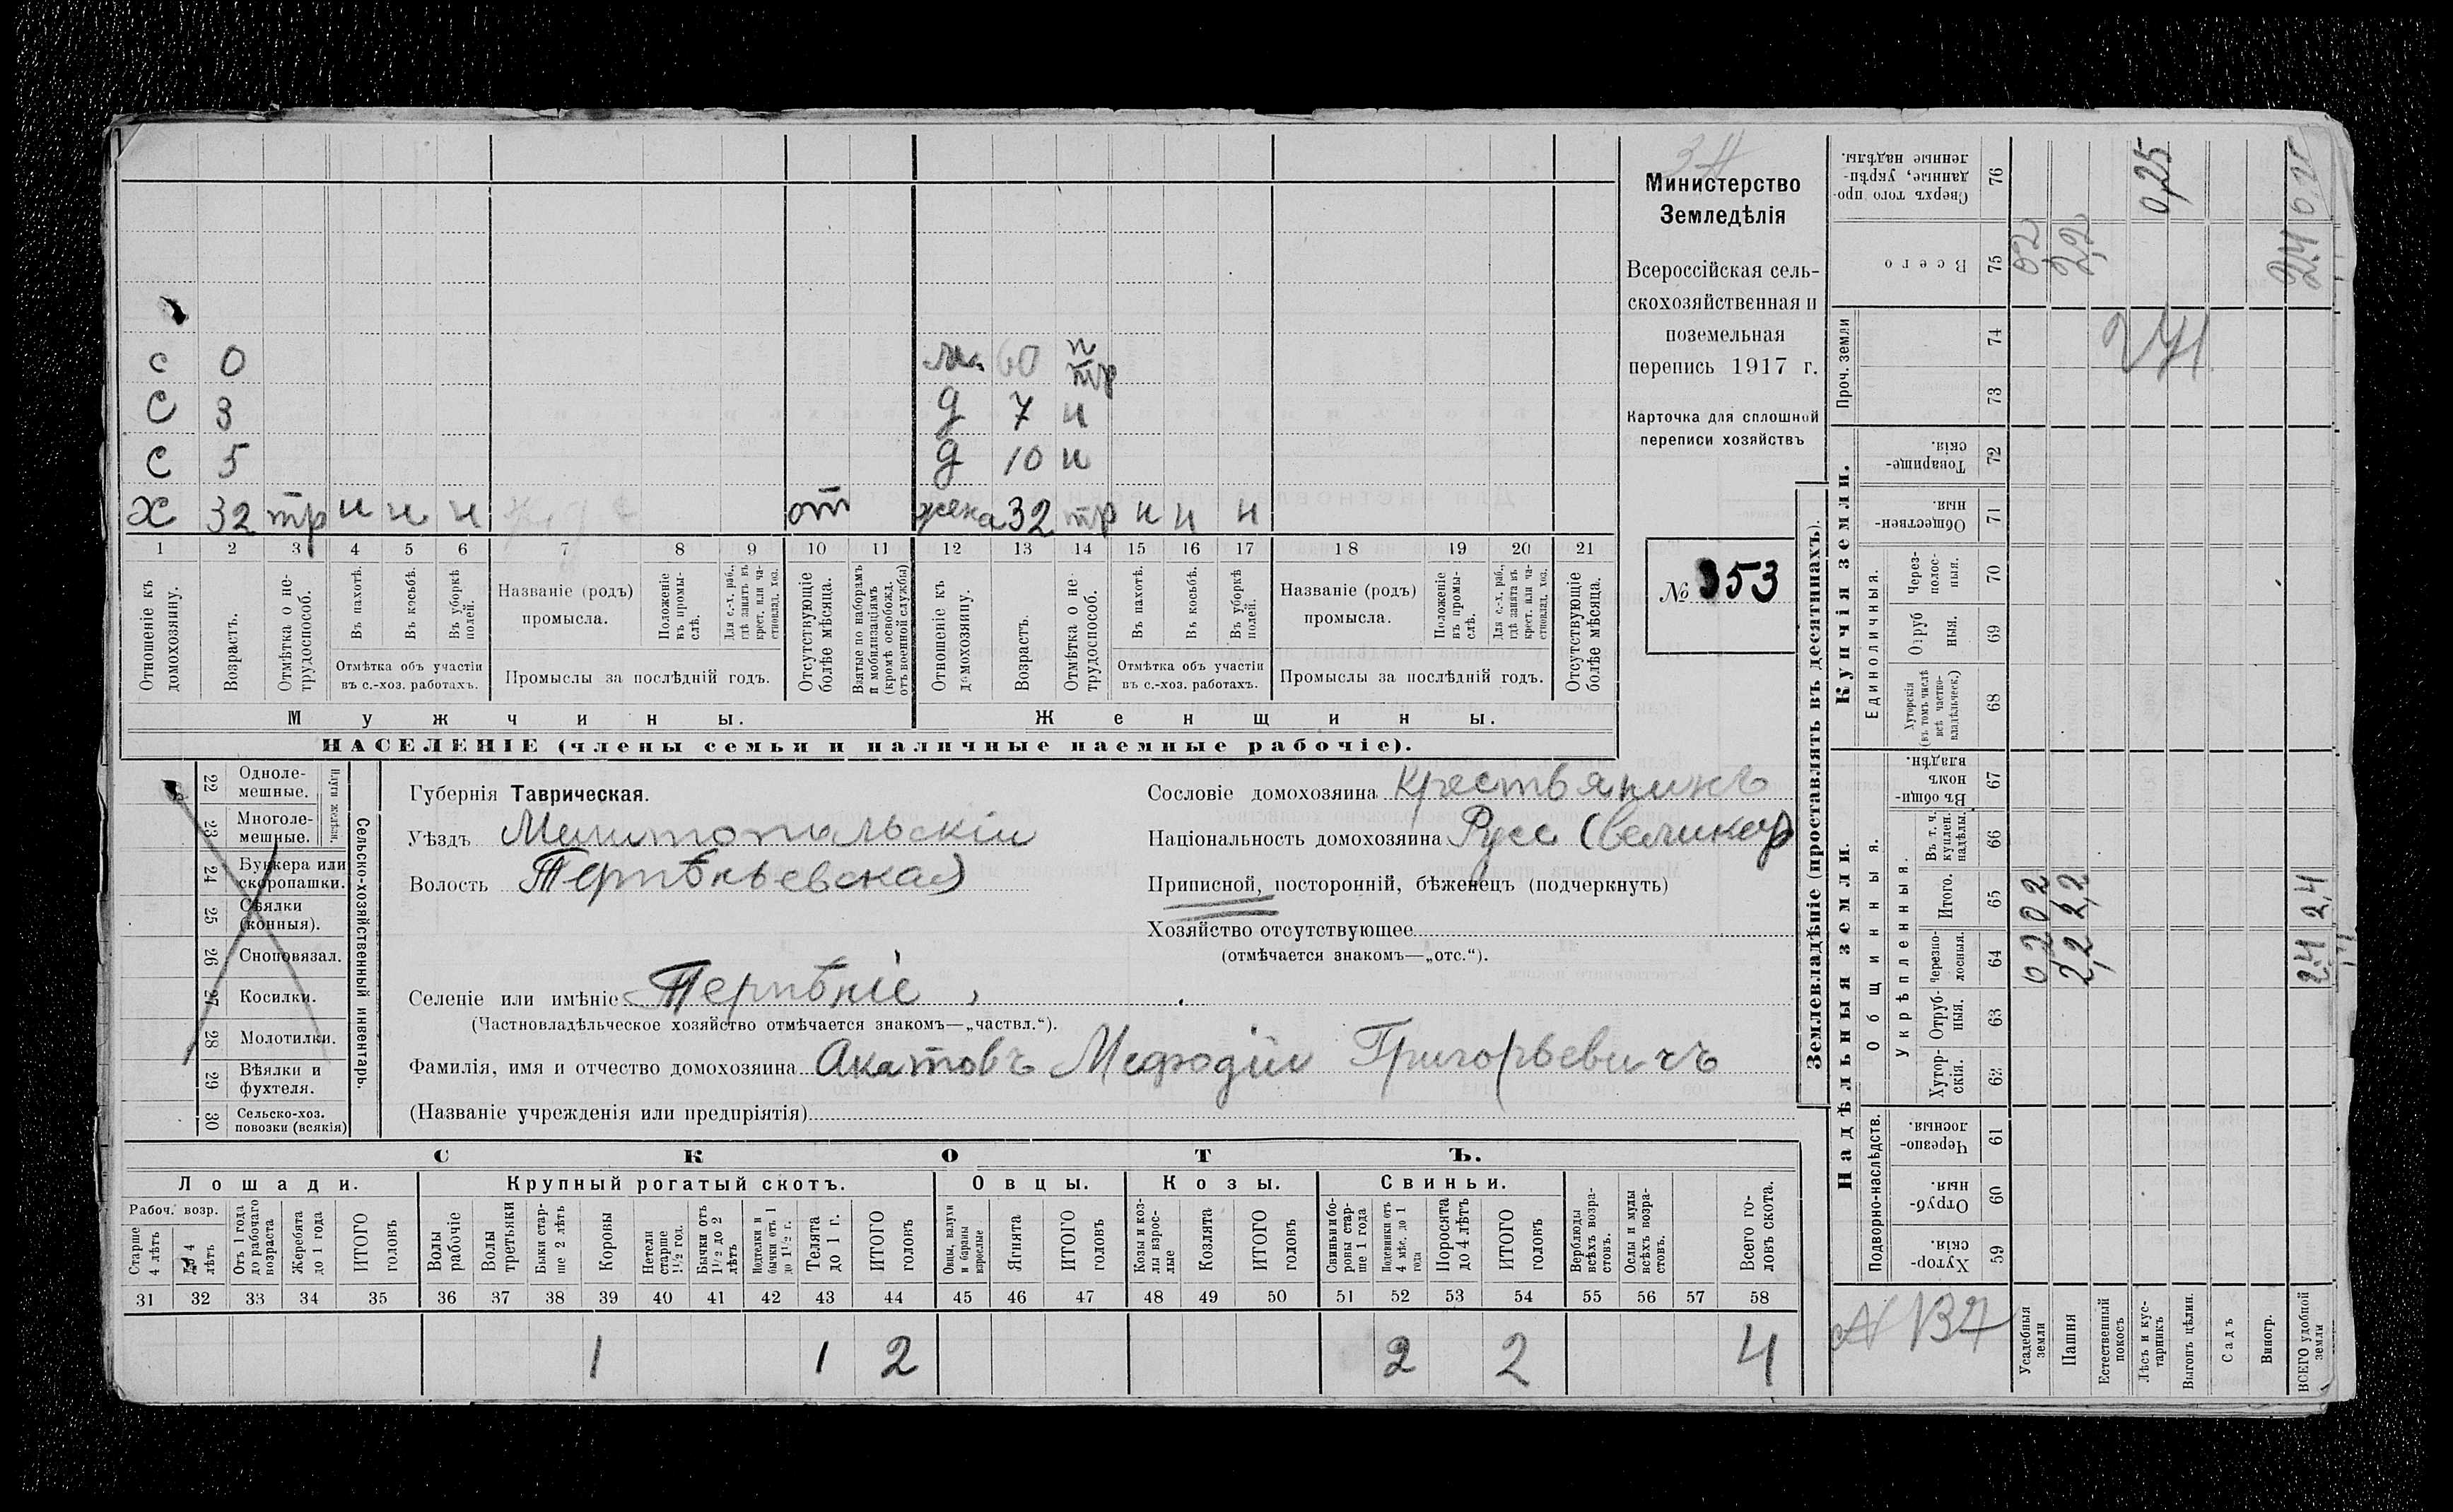 с 0 м. 60 н тр
с 3 д 7 н
с 5 д 10 н
х 32 тр и и и от жена 32 тр и и и
1 2 3 4 5 6 7 8 9 10 11 12 13 14 15 16 17 18 19 20 21
Отношеніе къ домохозяину.
Возрастъ.
Отмѣтка о не-трудоспособ.
Въ пахотѣ.
Въ косьбѣ.
Въ уборкѣ полей.
Отмѣтка объ участіи
въ с.-хоз. работахъ.
Названіе (родъ)
промысла.
Положеніе въ промы-слѣ.
Для с.-х. раб., гдѣ занятъ въ крест. или ча-стновлад. хоз.
Промыслы за послѣдній годъ.
Отсутствующіе болѣе мѣсяца.
Взятые по наборамъ и мобилизаціямъ (кромѣ освобожд. отъ военной службы)
Отношеніе къ домохозяину.
Возрастъ.
Отмѣтка о не-трудоспособ.
Въ пахотѣ.
Въ косьбѣ.
Въ уборкѣ полей.
Отмѣтка объ участіи
въ с.-хоз. работахъ.
Названіе (родъ)
промысла.
Положеніе въ промы-слѣ.
Для с.-х. раб., гдѣ занята въ крест. или ча-стновлад. хоз.
Промыслы за послѣдній годъ.
Отсутствующіе болѣе мѣсяца.
Мужчины. Женщины.
НАСЕЛЕНІЕ (члены семьи и наличные наемные рабочіе).
Министерство
Земледѣлія
Всероссійская сель-
скохозяйственная и
поземельная
перепись 1917 г.
Карточка для сплошной
переписи хозяйствъ
№ 353
22 Одноле-мешные.
23 Многоле-мешные.
24 Буккера или скоропашки.
25 Сѣялки (конныя).
26 Сноповязал.
27 Косилки.
28 Молотилки.
29 Вѣялки и фухтеля.
30 Сельско-хоз. повозки (всякія)
Плуги желѣзн.
Сельско-хозяйственный инвентарь.
Губернія Таврическая.
Уѣздъ Мелитопольскій
Волость Терпѣньевская
Сословіе домохозяина Крестьянинъ
Національность домохозяина Русс (великор
Приписной, посторонній, бѣженецъ (подчеркнуть)
Хозяйство отсутствующее
(отмѣчается знакомъ—„отс.“).
Селеніе или имѣніе Терпѣніе
(Частновладѣльческое хозяйство отмѣчается знакомъ—„частвл.“).
Фамилія, имя и отчество домохозяина Акатовъ Мефодій Григорьевичъ
(Названіе учрежденія или предпріятія)
СКОТЪ.
Лошади. Крупный рогатый скотъ. Овцы. Козы. Свиньи.
Рабоч. возр.
Старше 4 лѣтъ
4 лѣтъ
Отъ 1 года до рабочаго возраста
Жеребята до 1 года
ИТОГО головъ
Волы рабочіе
Волы третьяки
Быки стар-ше 2 лѣтъ
Коровы
Нетели старше 1½ год.
Бычки отъ 1½ до 2 лѣтъ
бычки отъ 1 до 1½ г.
Телята до 1 г.
ИТОГО головъ
Овцы, валухи и бараны взрослые
Ягнята
ИТОГО головъ
Козы и коз-лы взрос-лые
Козлята
ИТОГО головъ
Свиньи и бо-ровы стар-ше 1 года
Подсвинки отъ 4 мѣс. до 1 года
Поросята до 4 лѣтъ
ИТОГО головъ
Верблюды всѣхъ возра-стовъ.
Ослы и мулы всѣхъ возра-стовъ.
Всего го-ловъ скота.
31 32 33 34 35 36 37 38 39 40 41 42 43 44 45 46 47 48 49 50 51 52 53 54 55 56 57 58
1 1 2 2 2 4
Землевладѣніе (проставлять въ десятинахъ).
Надѣльныя земли. Купчія земли.
Подворно-наслѣдств.
Общинныя.
Укрѣпленныя.
Единоличныя.
Проч. земли
Сверхъ того про-данные, укрѣп-ленные надѣлы. 76 0,25 0,25
Всего 75 0,2 2,2 2,4
74
73
Товарище-скія. 72
Обществен-ныя. 71
Через-полос-ныя. 70
Отруб-ныя. 69
Хуторскія (въ томъ числѣ всѣ частно-владѣльческ.) 68
Въ общи-номъ владѣн. 67
Въ т. ч. куплен. надѣлы. 66
Итого. 65 0,2 2,2 2,4
Черезпо-лосныя. 64 0,2 2,2 2,4
Отруб-ныя. 63
Хутор-скія. 62
Черезпо-лосныя. 61
Отруб-ныя. 60
Хутор-скія. 59
Усадебныя земли
Пашня
Естественный покосъ
Лѣсъ и кус-тарникъ
Выгонъ цѣлин.
Садъ
Виногр.
ВСЕГО удобной земли